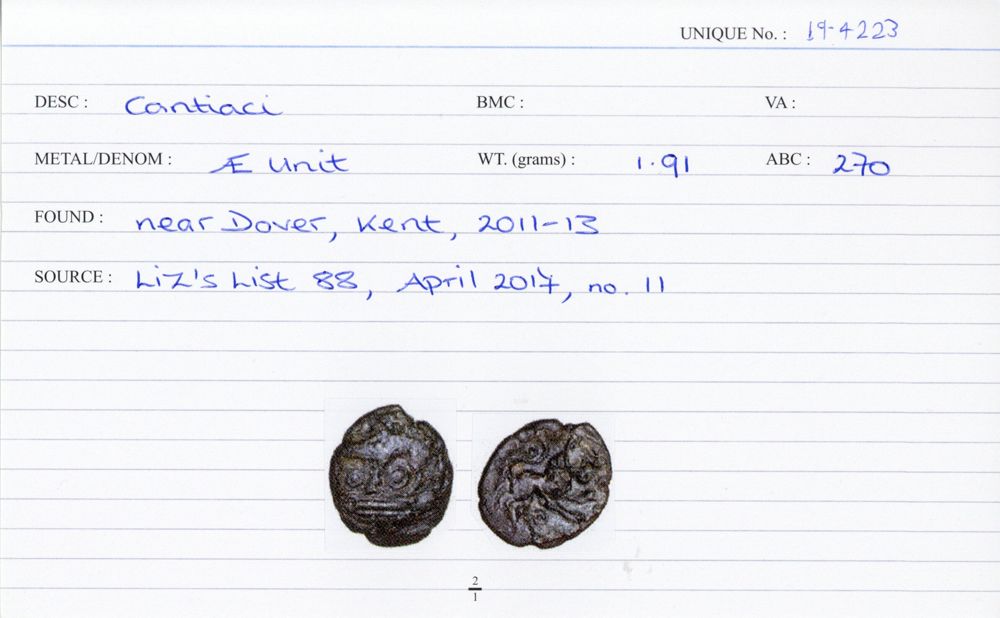 UNIQUE No. : 19-4223
DESC : Cantiaci BMC : VA :
METAL/DENOM : Æ Unit WT. (grams) : 1.91 ABC : 270
FOUND : near Dover, Kent, 2011-13
SOURCE : Liz's List 88, April 2017, no. 11
2
1